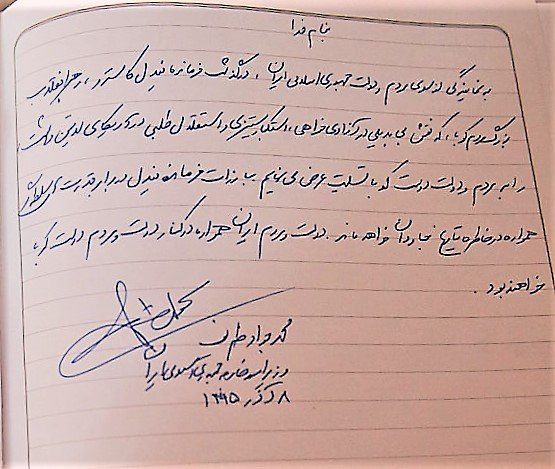 بنام خدا
به نمایندگی از سوی مردم و دولت جمهوری اسلامی ایران، درگذشت فرمانده فیدل کاسترو، رهبر انقلاب
و مردم کوبا، که نقش بی بدیلی در آزادی خواهی، استکبار ستیزی و استقلال طلبی در آمریکای لاتین داشت
را به مردم و دولت دوست کوبا تسلیت عرض می نمایم. مبارزات فرمانده فیدل در برابر قدرت های سلطه گر
همواره در خاطره تاریخ جاودان خواهد ماند. دولت و مردم ایران همواره در کنار دولت و مردم دوست کوبا
خواهند بود.
محمد جواد ظریف
وزیر امور خارجه جمهوری اسلامی ایران
۸ آذر ۱۳۹۵